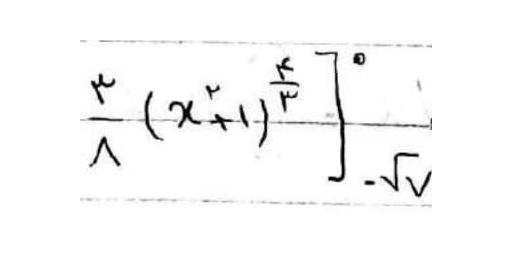 \frac{۳}{۸} (x^{۲}+۱)^{\frac{۴}{۳}} \Big]_{-\sqrt{۷}}^{۰}